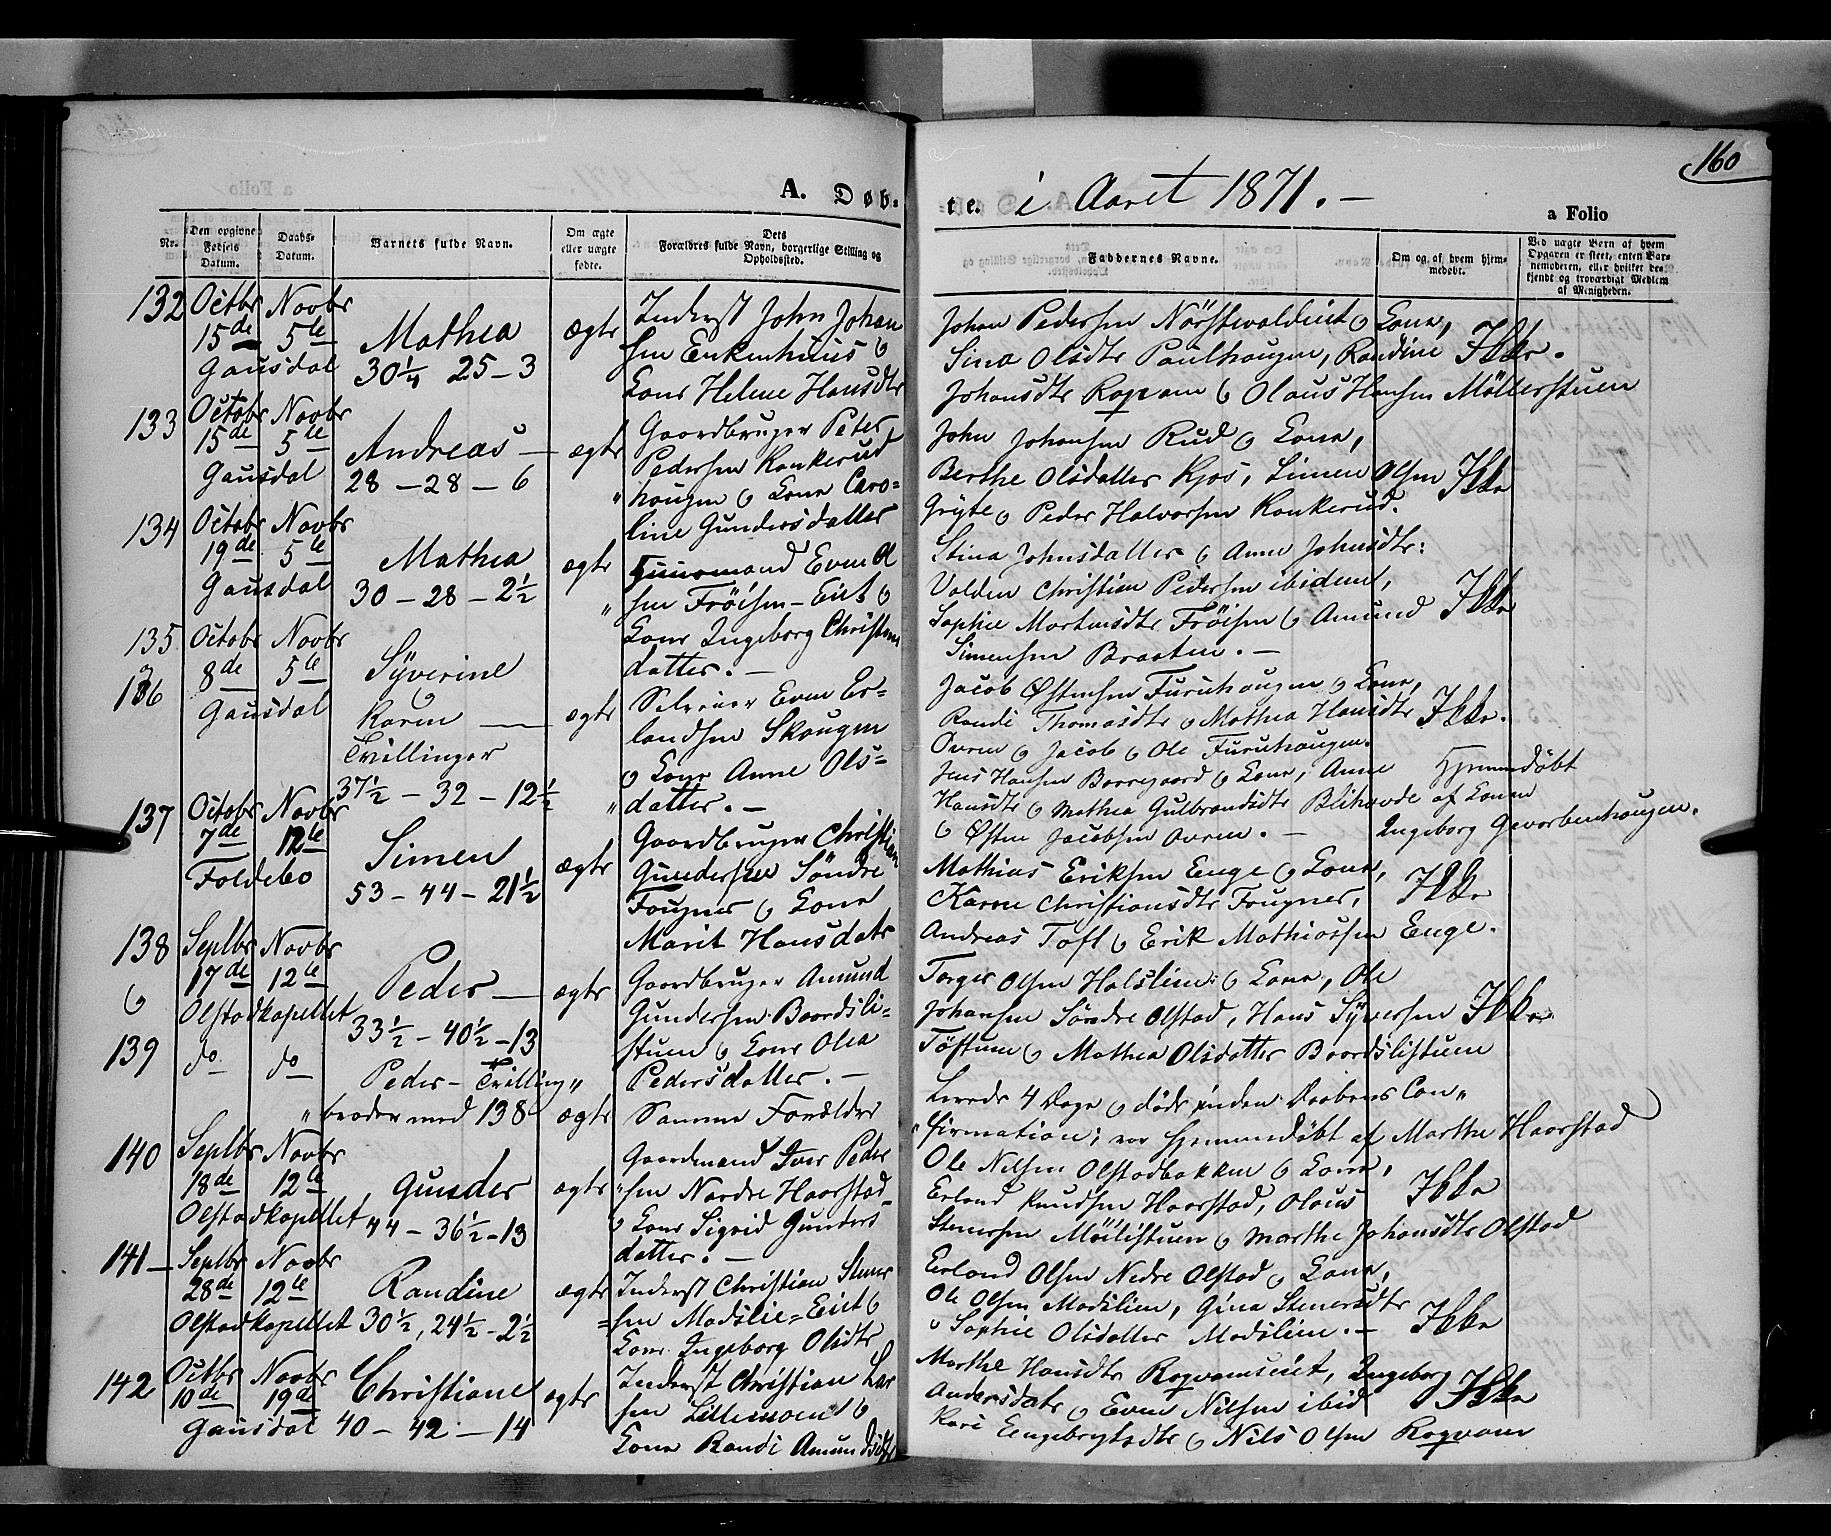 160
A. Døb- te. i Aaret 1871. -
a Folio
Nr.
Den opgivne Fødsels Datum.
Daabs-Datum.
Barnets fulde Navn.
Om ægte eller uægte fødte.
Dets Forældres fulde Navn, borgerlige Stilling og Opholdssted.
Faddernes Navne.
Om og af hvem hjemmedøbt.
Ved uægte Børn af hvem Opgaven er skeet, enten Barnemoderen, eller hvilket bekjendt og troværdigt Medlem af Menigheden.
132 Octbr 15de Novbr 5te Gausdal
Mathea
30 1/4 25-3
ægte
Inderst John Johan
sen Enkenhuus &
Kone Helene Hansdtr
Johan Pedersen & Kone,
Sina Olsdtr Paulhaugen, Randine
Johansdtr Roqvam & Olaus Hansen Møllerstuen
Ikke.
133 Octobr 15de Novbr 5te Gausdal
Andreas -
28 - 28 - 6
ægte
Gaardbruger Peter
Pedersen Kankerud
haugen & Kone Caro-
line Gundersdatter
John Johansen Rud & Kone,
Berthe Olsdatter Kjos, Simen Olsen
Gryte & Peder Halvorsen Kankerud.
Ikke
134 Octobr 19de Novbr 5te Gausdal
Mathea
30 - 28 - 2½
ægte
Huusmand Even Ol
sen Frøisen-Eiet &
Kone Ingeborg Christens
datter. -
Stina Johnsdatter & Anne Johnsdtr:
Volden Christian Pedersen ibidem,
Sophie Martinsdtr Frøisen & Amund
Simensen Braaten. -
Ikke
135 & 136 Octobr 8de Novbr 5te Gausdal
Syverine
&
Karen
Tvillinger
37½ - 32 - 12½
ægte
Selveier Even Er-
landsen Skougen
& Kone Anne Ols-
datter. -
Jacob Østensen Furuhaugen & Kone,
Randi Thomasdtr & Mathea Hansdtr
Ovren & Jacob & Ole Furuhaugen.
Jens Hansen Borregaard & Kone, Anne
Hansdtr & Mathea Gulbrandsdtr
& Østen Jacobsen Ovren. -
Ikke.
Hjemmedøbt
af Konen
Ingeborg
137 Octobr 7de Novbr 12te Foldebo
Simen
53 - 44 - 21½
ægte
Gaardbruger Christian
Gundersen Søndre
Fougner & Kone
Marit Hansdatr
Mathias Eriksen Enge & Kone,
Karen Christiansdtr Fougner,
Andreas Toft & Erik Mathiassen Enge.
Ikke
138 Septbr 17de Novbr 12te Olstadkapellet
&
Peder -
33½ - 40½ - 13
ægte
Gaardbruger Amund
Gundersen Baardsli-
stuen & Kone Olea
Pedersdatter. -
Torger Olsen Holslien & Kone, Ole
Johansen Søndre Olstad, Hans Syversen
Toftum & Mathea Olsdatter Baardslistuen
Ikke
139 do do
Peder - Tvilling
broder med 138
ægte
Samme Forældre
Levede 4 Dage & døde inden Daabens Con-
firmation; var hjemmedøbt af Marthe Haarstad
140 Septbr 18de Novbr 12te Olstadkapellet
Gunder
44 - 36½ - 13
ægte
Gaardmand Iver Peder
sen Nordre Haarstad
& Kone Sigrid Gunders
datter. -
Ole Nilsen Olstadbakken & Kone,
Erland Knudsen Haarstad, Olaus
Stenersen & Marthe Johansdtr Olstad
Ikke
141 - Septbr 28de Novbr 12te Olstadkapellet
Randine
30½, 24½ - 2½
ægte
Inderst Christian Stener
sen Madslie-Eiet &
Kone Ingeborg Olsdtr
Erland Olsen Nedre Olstad & Kone,
Ole Olsen Madslien, Gina Stenersdtr
& Sophie Olsdatter Madslien. -
Ikke
142 Octbr 10de Novbr 19de Gausdal
Christiane
40 - 42 - 14
ægte
Inderst Christian Lar
sen Lillemoen &
Kone Randi Amundsdtr
Marthe Hansdtr Roqvamseiet, Ingeborg
Andersdatr & Even Nilsen ibid
Kari Engebrigtsdtr & Nils Olsen Roqvam
Ikke